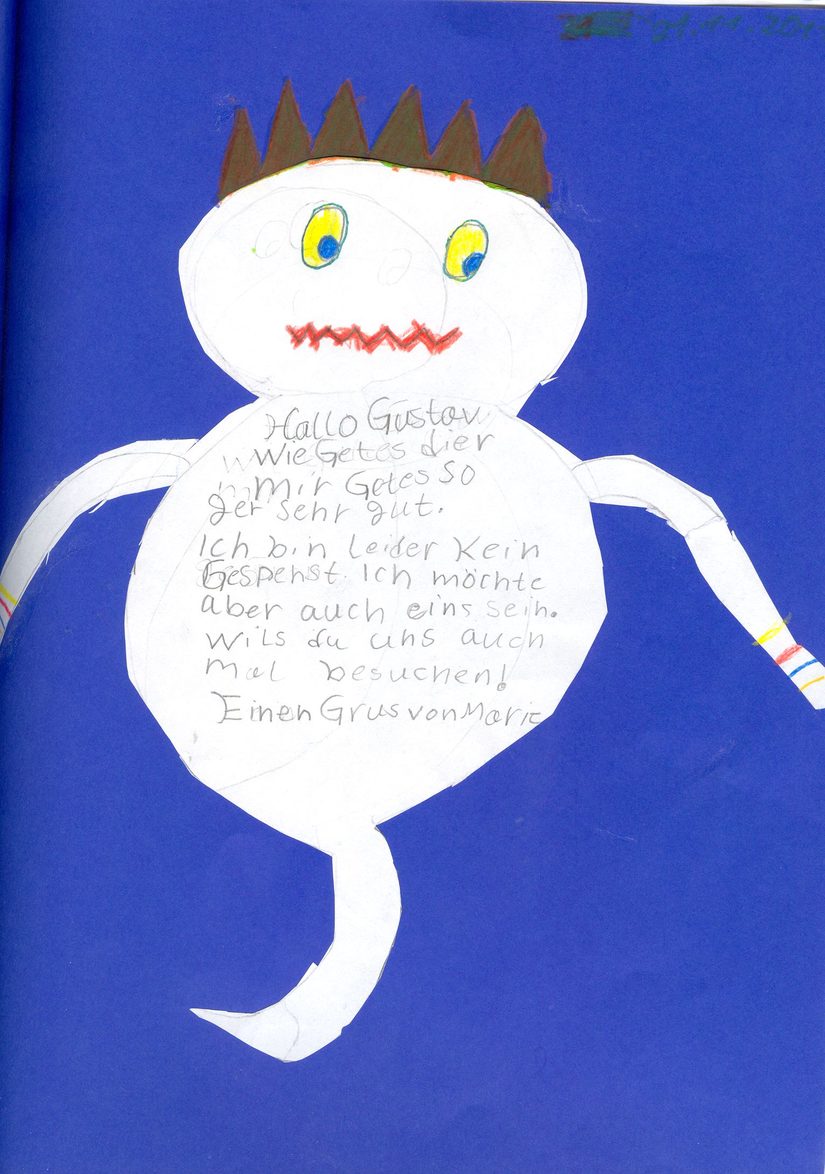 Hallo Gustav
Wie Getes dier
Mir Getes So
ger sehr gut.
Ich bin leider Kein
Gespenst. Ich möchte
aber auch eins sein.
Wils du uns auch
mal besuchen!
Einen Grus von Marie